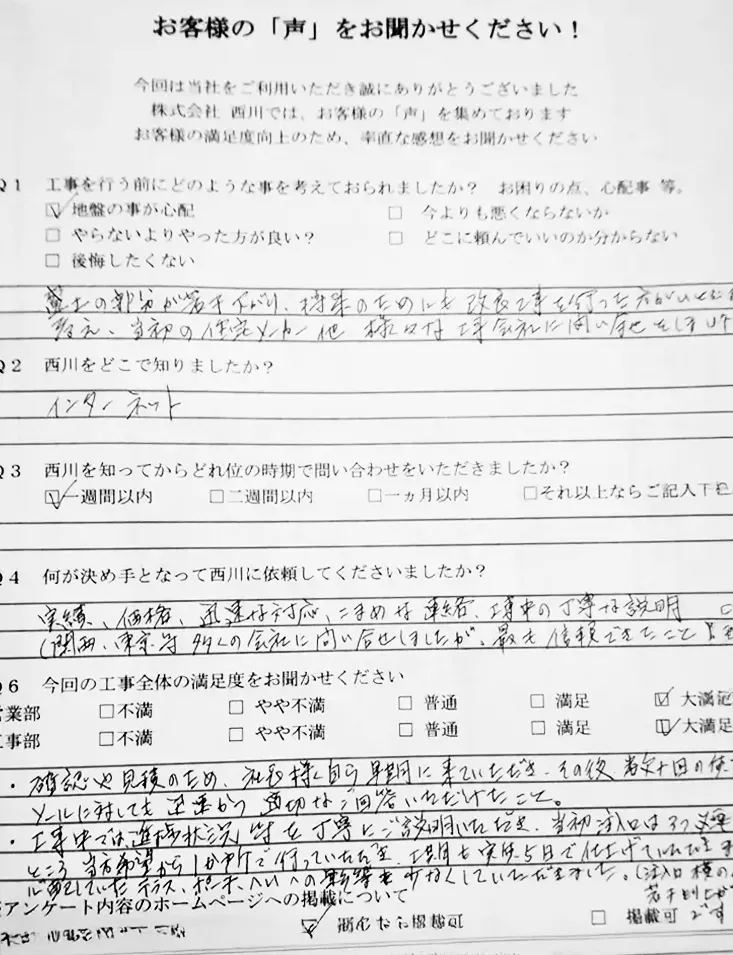 お客様の「声」をお聞かせください！
今回は当社をご利用いただき誠にありがとうございました
株式会社 西川では、お客様の「声」を集めております
お客様の満足度向上のため、率直な感想をお聞かせください
Q1 工事を行う前にどのような事を考えておられましたか？ お困りの点、心配事 等。
☑ 地盤の事が心配 □ 今よりも悪くならないか
□ やらないよりやった方が良い？ □ どこに頼んでいいのか分からない
□ 後悔したくない
盛土の部分が若干下がり、将来のためにも改良工事を行った方がいいと
考え、当初の住宅メーカー他 様々な工事会社に問い合せをしました
Q2 西川をどこで知りましたか？
インターネット
Q3 西川を知ってからどれ位の時期で問い合わせをいただきましたか？
☑一週間以内 □二週間以内 □一ヵ月以内 □それ以上ならご記入下
Q4 何が決め手となって西川に依頼してくださいましたか？
実績、価格、迅速な対応、こまめな連絡、工事中の丁寧な説明
(関西、東京等 多くの会社に問い合せしましたが、最も信頼できたこと
Q6 今回の工事全体の満足度をお聞かせください
営業部 □不満 □ やや不満 □ 普通 □ 満足 ☑ 大満足
工事部 □不満 □ やや不満 □ 普通 □ 満足 ☑ 大満足
・確認や見積のため、社長様自ら早期に来ていただき、その後 数十回の
メールに対しても迅速かつ適切なご回答いただけたこと。
・工事中では進捗状況等を丁寧にご説明いただき、当初注入口は3つ必要
ところ 当方希望から1か所で行っていただき、工期も実質5日で仕上げていただき
していた テラス、への影響も少なくしていただきました。(注入口 横の
若干
アンケート内容のホームページへの掲載について
☑ 匿名なら掲載可 □ 掲載可 です